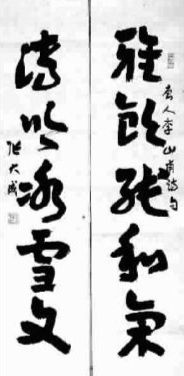 雅飲純和氣
唐人李山甫詩句
清吟冰雪文
張大成